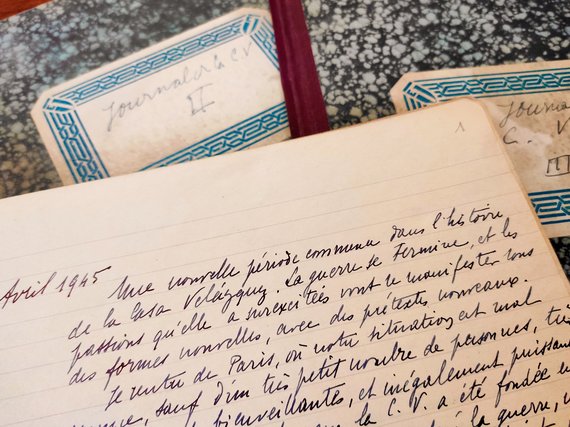 Journal de la C. V.
II
Journal
C. V.
1
Avril 1945 Une nouvelle période commence dans l'histoire
de la Casa Velázquez. La guerre se termine, et les
passions qu'elle a surexcitées vont se manifester sous
des formes nouvelles, avec des prétextes nouveaux.
Je rentre de Paris, où notre situation est mal
sauf d'un très petit nombre de personnes, très
bienveillantes, et inégalement puissan
la C. V. a été fondée
la guerre,